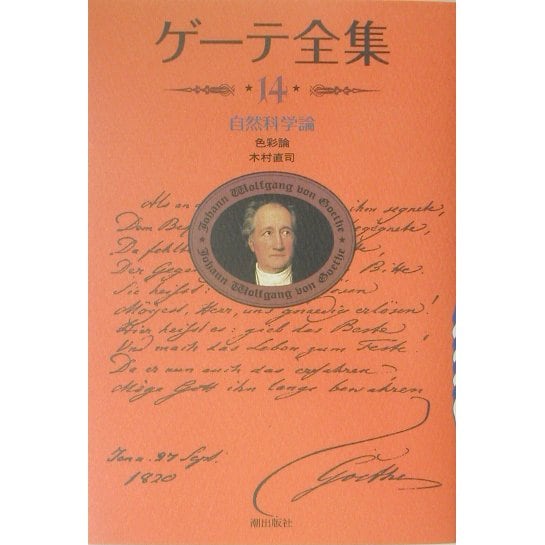 ゲーテ全集
14
自然科学論
色彩論
木村直司
Johann Wolfgang von Goethe
Johann Wolfgang von Goethe
Als an ihm segnete,
Dem Beg gegnete,
Da fehlt te,
Der Gegen Bitte.
Sie heisst:
Mögest, Herr, uns gnaedig erlösen!
Hier heisst es: gieb das Beste,
Und mach das Leben zum Feste
Da er nun auch das erfahren
Möge Gott ihn lange bewahren
Jena. 27 Sept.
1820
Goethe
潮出版社